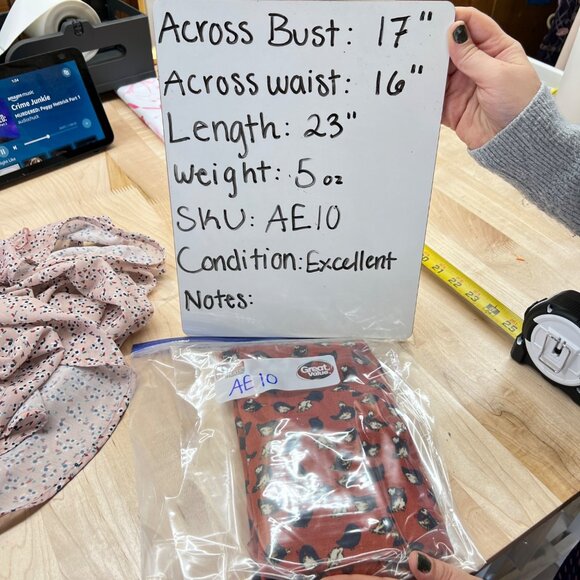 1:24
amazon music
Crime Junkie
MURDERED: Peggy Hettrick Part 1
audiochuck
Across Bust: 17"
Across waist: 16"
Length: 23"
Weight: 5 oz
SKU: AE10
Condition: Excellent
Notes:
21 22 23 24 25
Great Value
AE 10